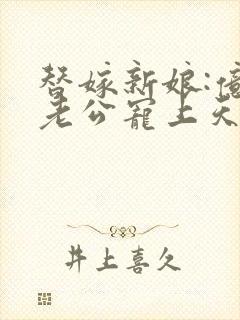 替嫁新娘:億
老公寵上天
井上喜久